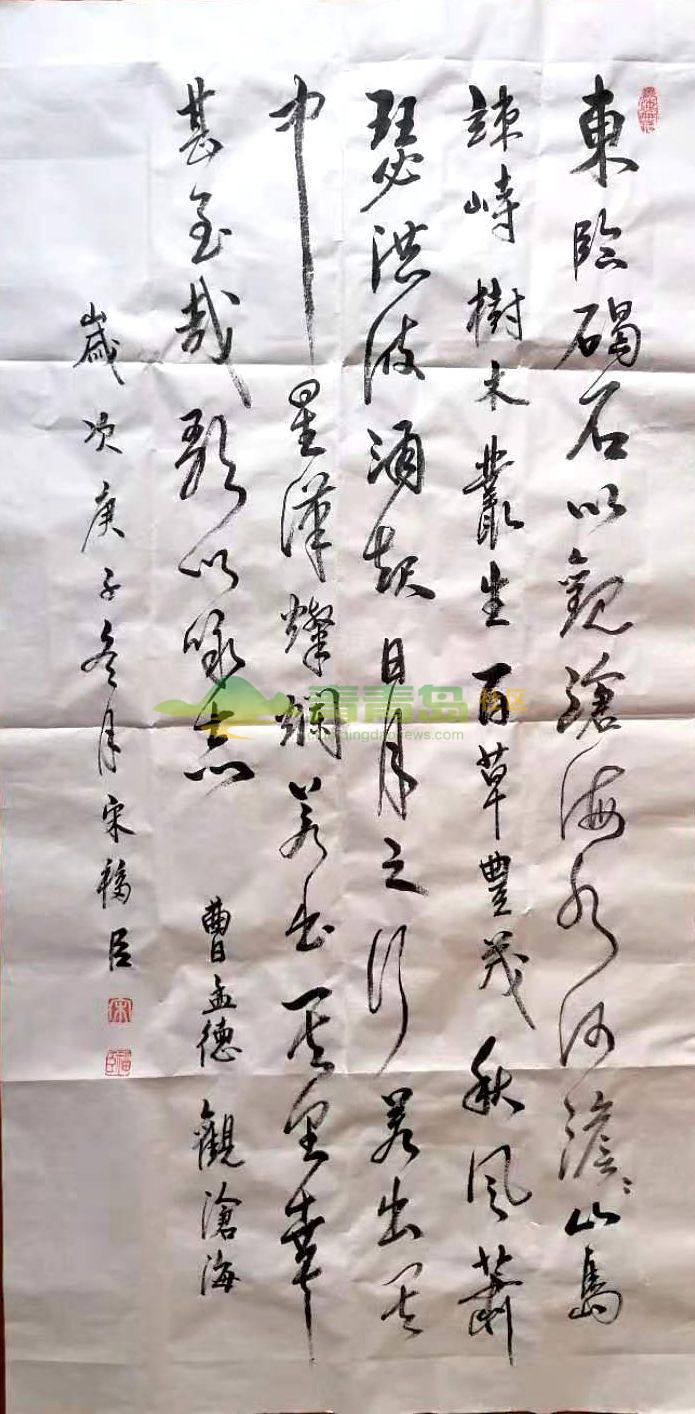 東臨碣石以觀滄海水何澹〻山島
竦峙樹木叢生百草豐茂秋風蕭
瑟洪波涌起日月之行若出其
中星漢燦爛若出其里幸
甚至哉歌以咏志 曹孟德 觀滄海
歲次庚子冬月宋福臣
宋
福臣
青青岛社区
club.qingdaonews.com